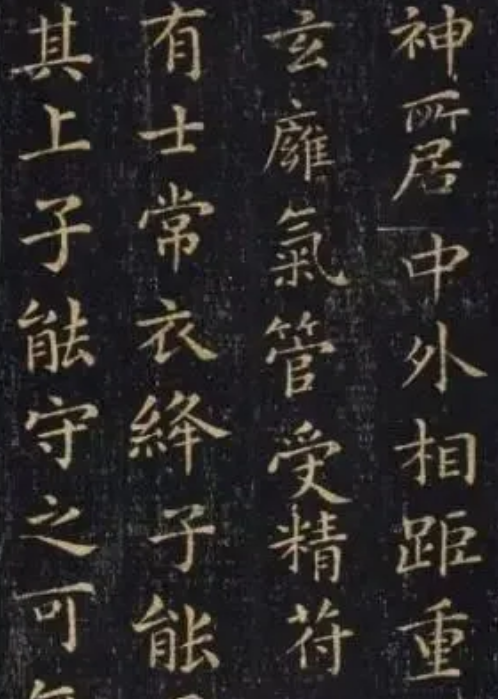 神所居中外相距重
玄𤸇氣管受精苻
有士常衣絳子能
其上子能守之可